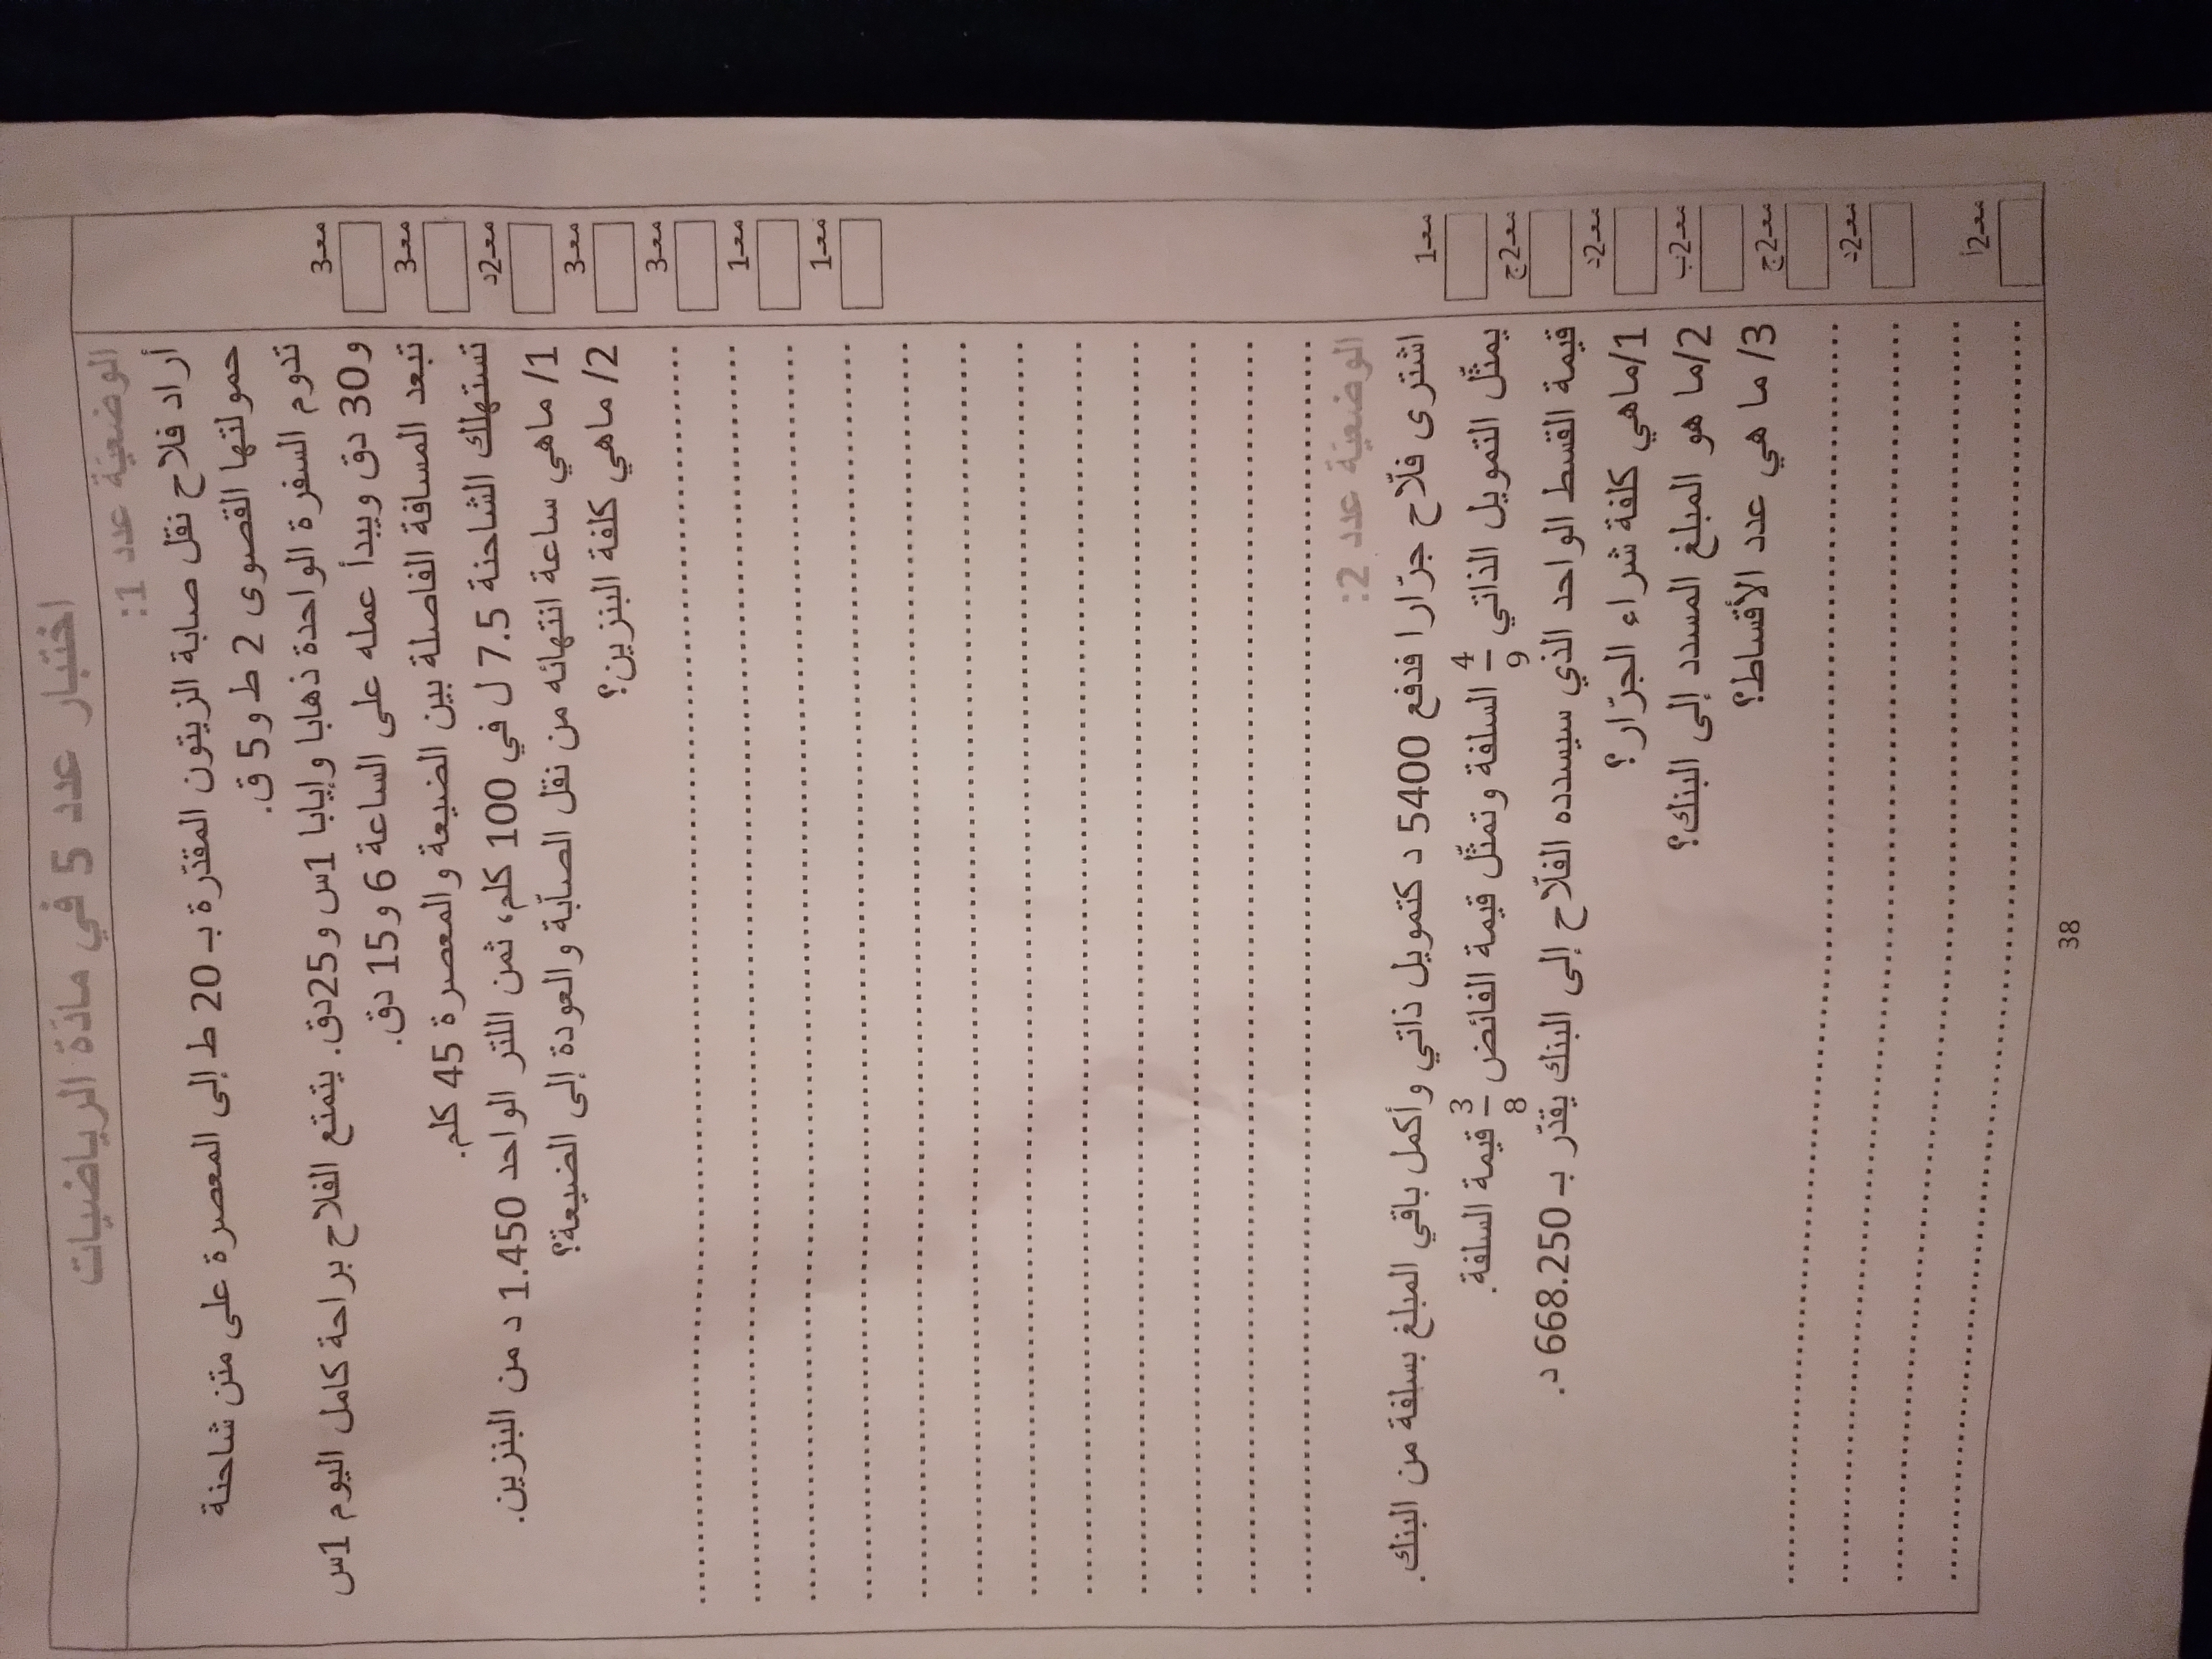 اختبار عدد 5 في مادّة الرياضيات
الوضعيّة عدد 1:
أراد فلاح نقل صابة الزيتون المقدّرة بـ 20 ط إلى المعصرة على متن شاحنة
حمولتها القصوى 2 ط و5 ق.
تدوم السفرة الواحدة ذهابا وإيابا 1س و25دق. يتمتع الفلاح براحة كامل اليوم 1س
و30 دق ويبدأ عمله على الساعة 6 و15 دق.
تبعد المسافة الفاصلة بين الضيعة والمعصرة 45 كلم.
تستهلك الشاحنة 7.5 ل في 100 كلم، ثمن اللتر الواحد 1.450 د من البنزين.
1/ ماهي ساعة انتهائه من نقل الصّابة والعودة إلى الضيعة؟
2/ ماهي كلفة البنزين؟
معـ3
معـ3
معـ2د
معـ3
معـ3
معـ1
معـ1
الوضعيّة عدد 2:
اشترى فلّاح جرّارا فدفع 5400 د كتمويل ذاتي وأكمل باقي المبلغ بسلفة من البنك.
يمثّل التمويل الذاتي 4/9 السلفة وتمثّل قيمة الفائض 3/8 قيمة السلفة.
قيمة القسط الواحد الذي سيسدده الفلّاح إلى البنك يقدّر بـ 668.250 د.
1/ماهي كلفة شراء الجرّار؟
2/ما هو المبلغ المسدد إلى البنك؟
3/ ما هي عدد الأقساط؟
معـ1
معـ2ج
معـ2د
معـ2ب
معـ2ج
معـ2د
معـ2أ
38